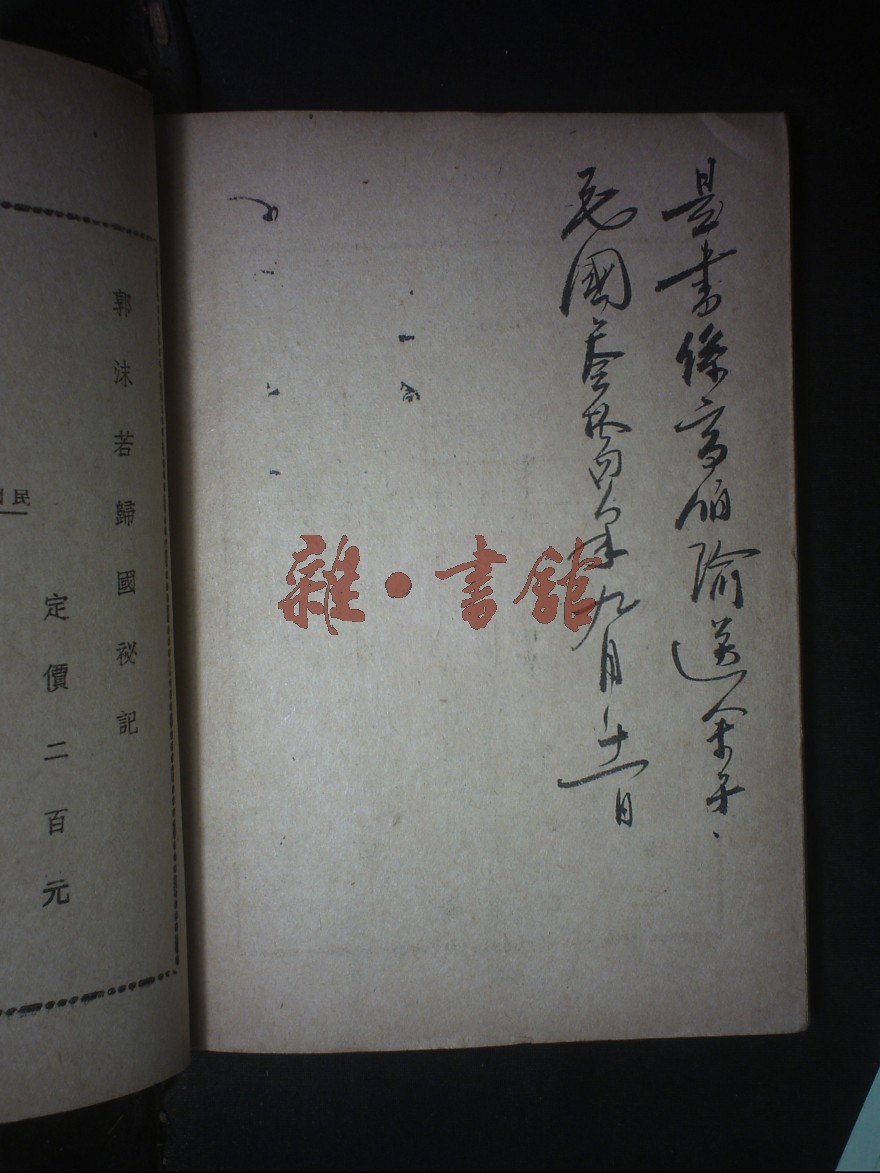 是書係高伯瑜送余于、
民國叁拾四年九月十一日
雜·書館
郭沫若歸國祕記
定價二百元
民